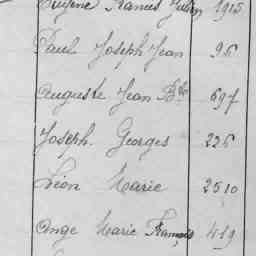 Eugène Francis Julien 1915
Paul Joseph Jean 96
Auguste Jean Bte 697
Joseph Georges 226
Léon Marie 2510
Ange Marie François 419